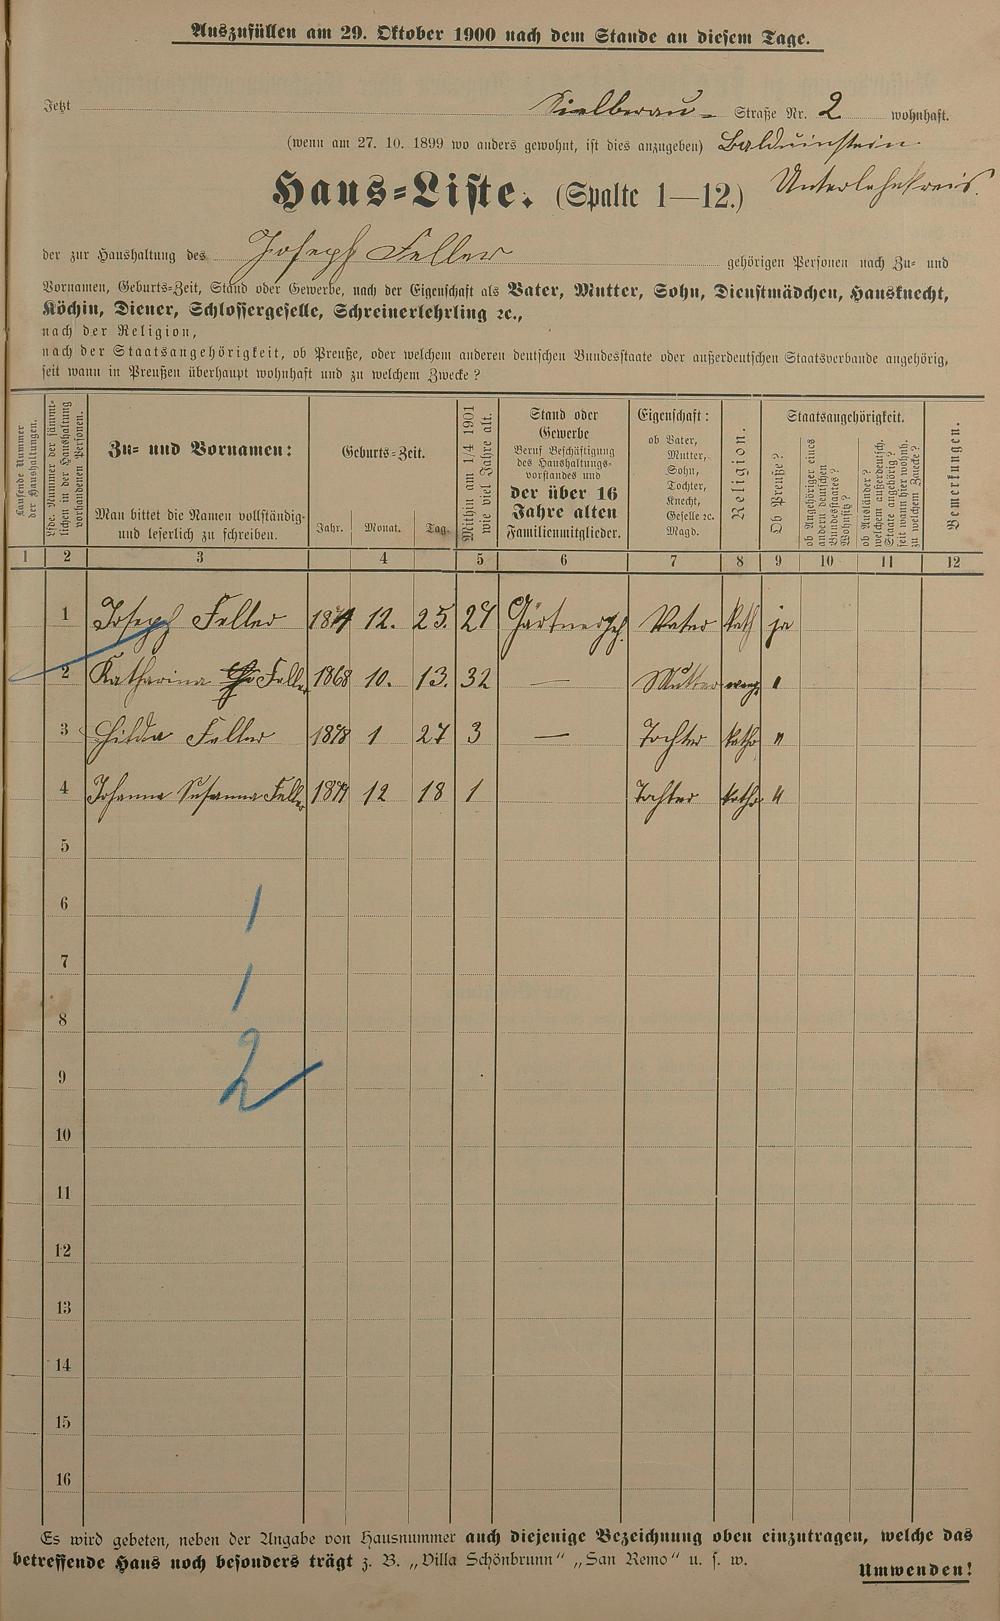 Auszufüllen am 29. Oktober 1900 nach dem Stande an diesem Tage.
Jetzt Kielberau- Straße Nr. 2 wohnhaft.
(wenn am 27. 10. 1899 wo anders gewohnt, ist dies anzugeben) Balduinstein.
Haus-Liste. (Spalte 1—12.) Unterlahnkreis.
der zur Haushaltung des Joseph Feller gehörigen Personen nach Zu- und
Vornamen, Geburts-Zeit, Stand oder Gewerbe, nach der Eigenschaft als Vater, Mutter, Sohn, Dienstmädchen, Hausknecht,
Köchin, Diener, Schlossergeselle, Schreinerlehrling ꝛc.,
nach der Religion,
nach der Staatsangehörigkeit, ob Preuße, oder welchem anderen deutschen Bundesstaate oder außerdeutschen Staatsverbande angehörig,
seit wann in Preußen überhaupt wohnhaft und zu welchem Zwecke?
Laufende Nummer
der Haushaltungen.
Lfde. Nummer der sämmt-
lichen in der Haushaltung
vorhandenen Personen.
Zu- und Vornamen:
Man bittet die Namen vollständig
und leserlich zu schreiben.
Geburts-Zeit.
Jahr. Monat. Tag.
Mithin am 1/4 1901
wie viel Jahre alt.
Stand oder
Gewerbe
Beruf Beschäftigung
des Haushaltungs-
vorstandes und
der über 16
Jahre alten
Familienmitglieder.
Eigenschaft:
ob Vater,
Mutter,
Sohn,
Tochter,
Knecht,
Geselle ꝛc.
Magd.
Religion.
Staatsangehörigkeit.
Ob Preuße?
ob Angehöriger eines
andern deutschen
Bundesstaates?
Wohnsitz?
ob Ausländer?
welchem außerdeutsch.
Staate angehörig?
seit wann hier wohnh.
zu welchem Zwecke?
Bemerkungen.
1 2 3 4 5 6 7 8 9 10 11 12
1 Joseph Feller 1874 12. 25. 27 Gärtnergeh. Vater kath ja
2 Katharina Feller 1868 10. 13. 32 — Mutter evang. "
3 Hilda Feller 1898 1 27 3 — Tochter kath "
4 Johanna Susanna Feller 1899 12 18 1 Tochter kath "
5
6 1
7 1
8
9 2
10
11
12
13
14
15
16
Es wird gebeten, neben der Angabe von Hausnummer auch diejenige Bezeichnung oben einzutragen, welche das
betreffende Haus noch besonders trägt z. B. „Villa Schönbrunn" „San Remo" u. s. w.
Umwenden!